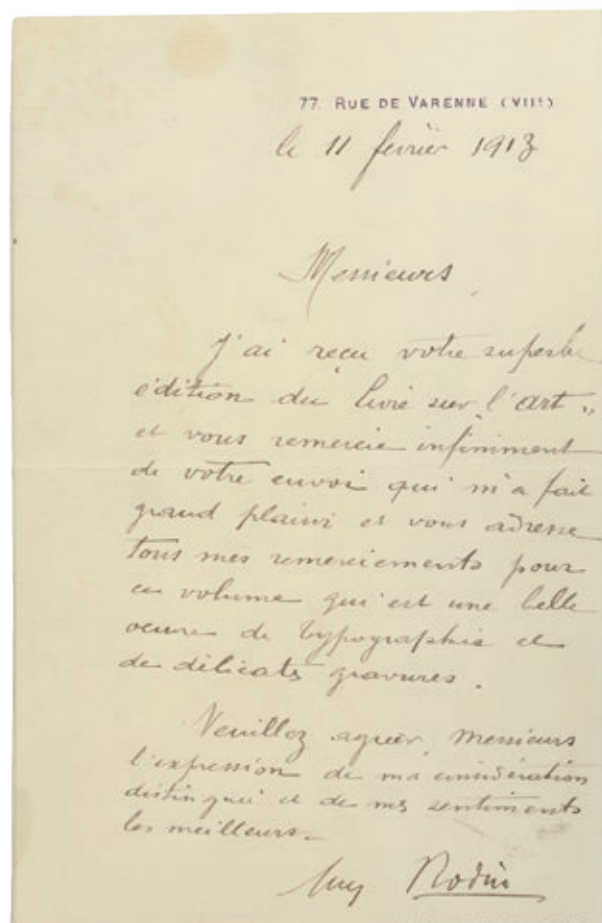 77. RUE DE VARENNE (VIIe)
le 11 février 1913
Messieurs
J'ai reçu votre superbe
édition du livre sur l'art "
et vous remercie infiniment
de votre envoi qui m'a fait
grand plaisir et vous adresse
tous mes remerciements pour
ce volume qui est une belle
oeuvre de typographie et
de délicats gravures.
Veuillez agréer, Messieurs
l'expression de ma considération
distingué et de mes sentiments
les meilleurs_
Aug Rodin